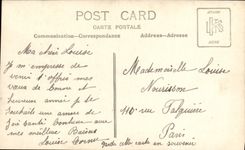 POST CARD
CARTE POSTALE
Communication—Correspondance
Address—Adresse
Ma chère Louise
Je m'empresse de
venir t'offrir mes
vœux de bonne et
heureuse année je te
souhaite une année de
joie santé bonheur
mes meilleurs Baisers
Louise
garde cette carte en souvenir
Mademoiselle Louise
Nourisson
110 rue
Paris